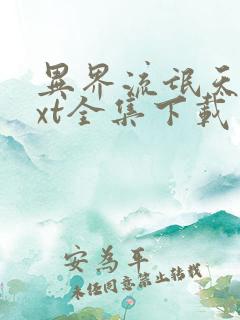 異界流氓天
xt全集下載
安為平
未經同意禁止轉載